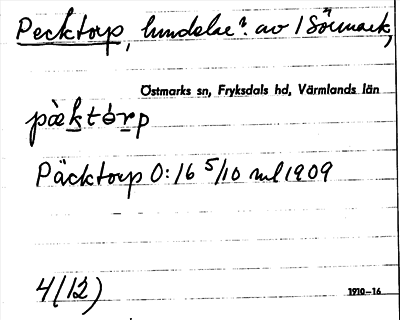 Pecktorp, hemdelse? av 1 Sörmark,
Östmarks sn, Fryksdals hd, Värmlands län
pàktórp
Päcktorp 0:16 5/10 ml 1909
4(12)
1910-16